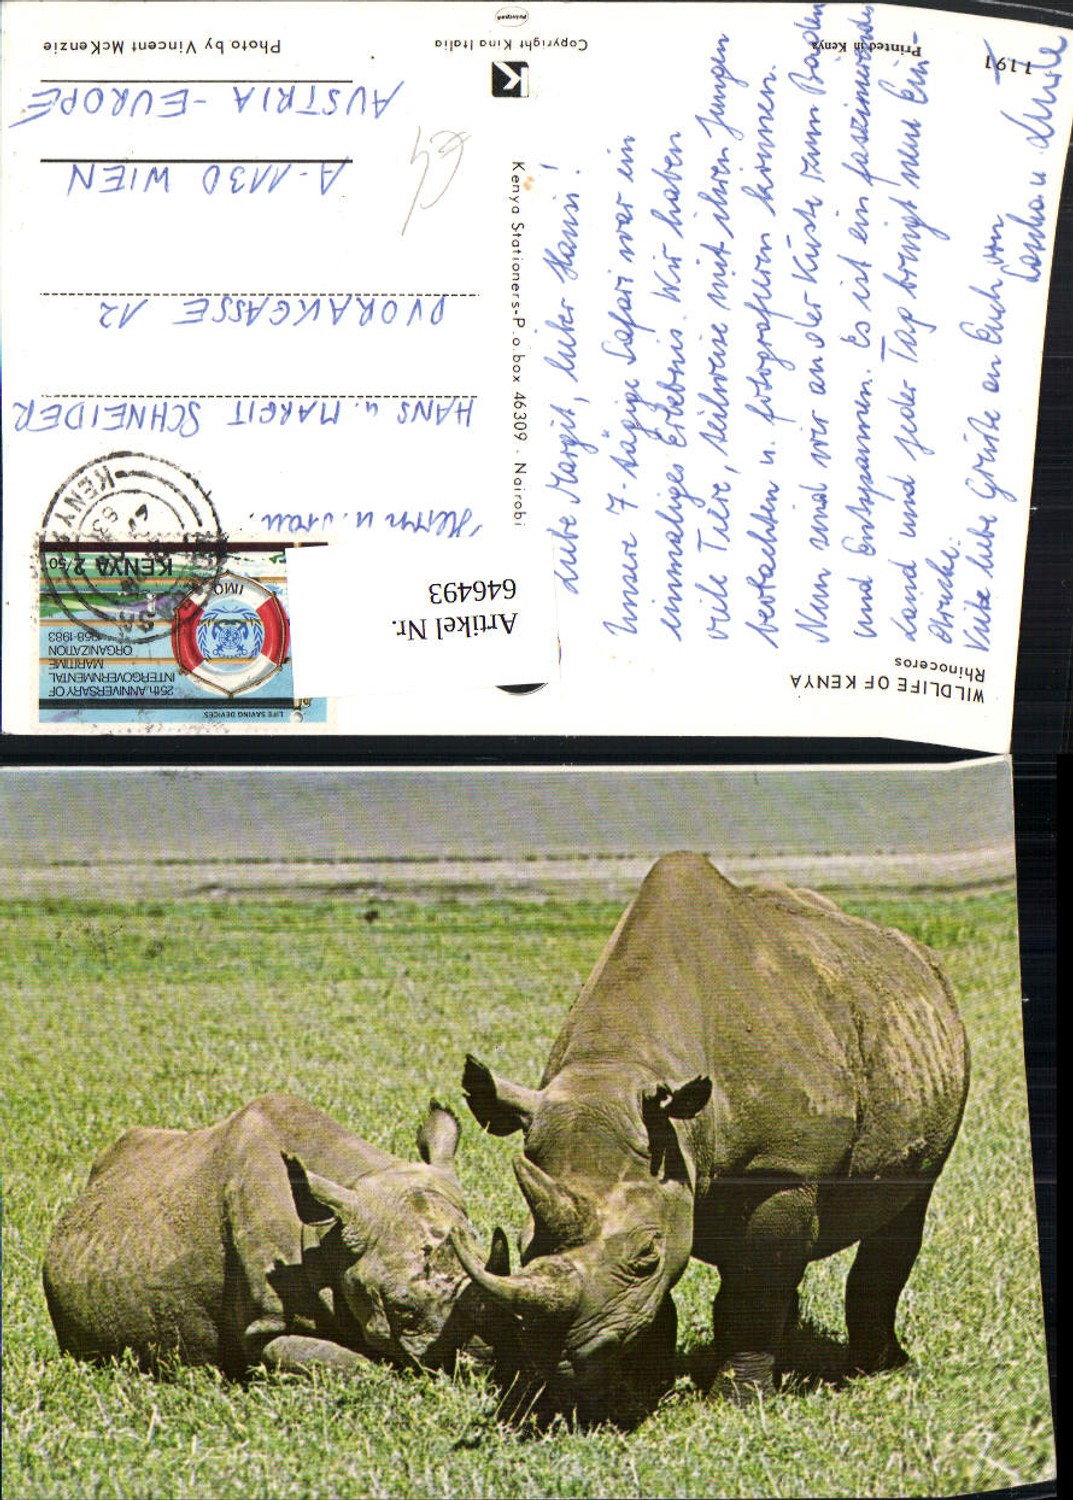 WILDLIFE OF KENYA
Rhinoceros
Liebe Margit, lieber Hansi!
Unsere 7-tägige Safari war ein
einmaliges Erlebnis. Wir haben
viele Tiere, teilweise mit ihren Jungen
beobachten u. fotografieren können.
Nun sind wir an der Küste zum Baden
und Entspannen. Es ist ein faszinierendes
Land und jeder Tag bringt neue Ein-
drücke.
Viele liebe Grüße an Euch von
1191
Printed in Kenya
Kenya Stationers-P.o.box 46309 - Nairobi
Copyright Kina Italia
K
Artikel Nr.
646493
LIFE SAVING DEVICES
25th ANNIVERSARY OF
INTERGOVERNMENTAL
MARITIME
ORGANIZATION
1958-1983
IMO
KENYA 2/50
KENY
Herrn u. Frau
HANS u. MARGIT SCHNEIDER
DVORAKGASSE 12
A-1130 WIEN
AUSTRIA-EUROPE
Photo by Vincent McKenzie